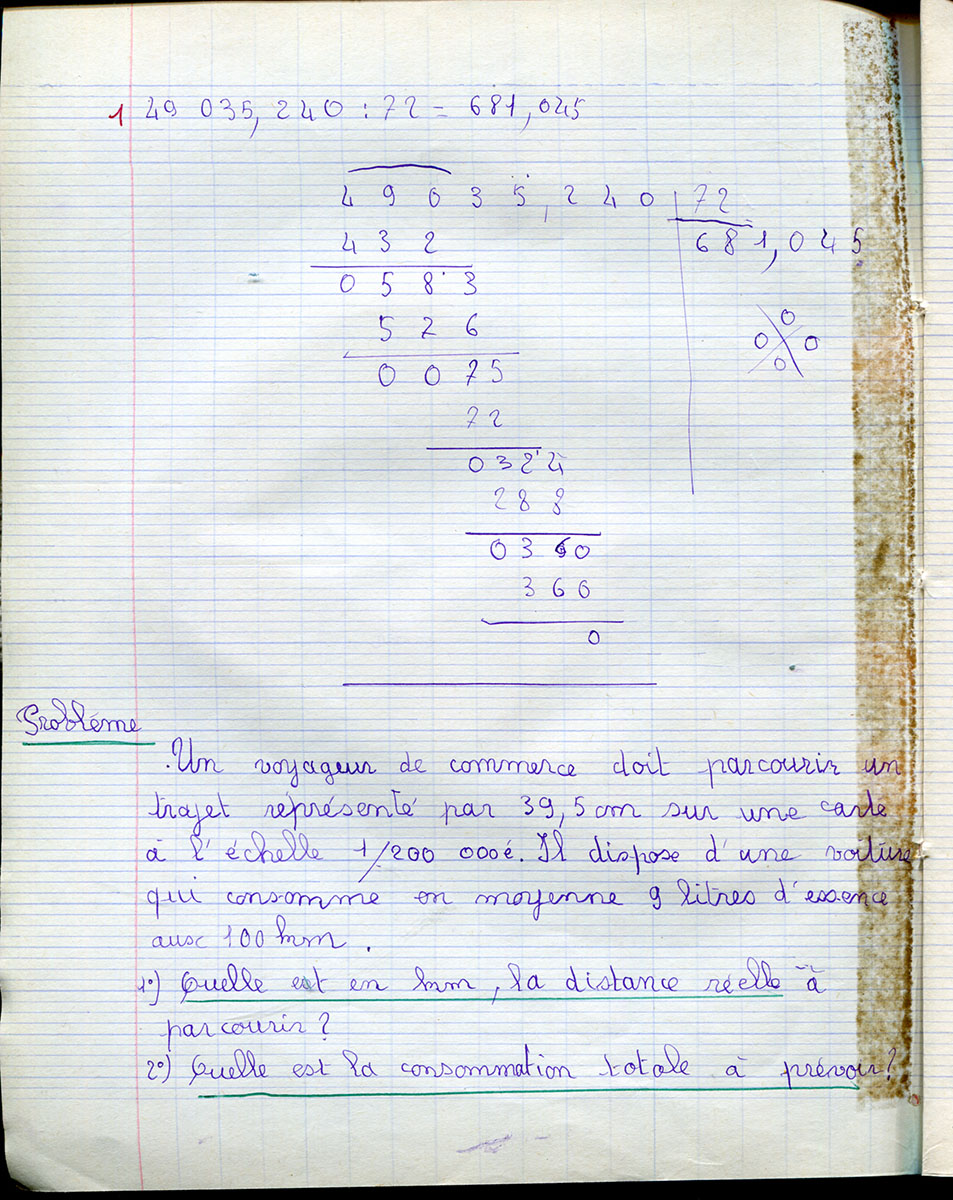 1 49 035, 240 : 72 = 681,045
4 9 0 3 5, 2 4 0 72
4 3 2 6 8 1, 0 4 5
0 5 8 3
5 7 6
0 0 7 5
7 2
0 3 2 4
2 8 8
0 3 6 0
3 6 0
0
0
0 0
0
Problème
Un voyageur de commerce doit parcourir un
trajet représenté par 39,5 cm sur une carte
à l'échelle 1/200 000é. Il dispose d'une voiture
qui consomme en moyenne 9 litres d'essence
aux 100 km.
1°) Quelle est en km, la distance réelle à
parcourir ?
2°) Quelle est la consommation totale à prévoir ?